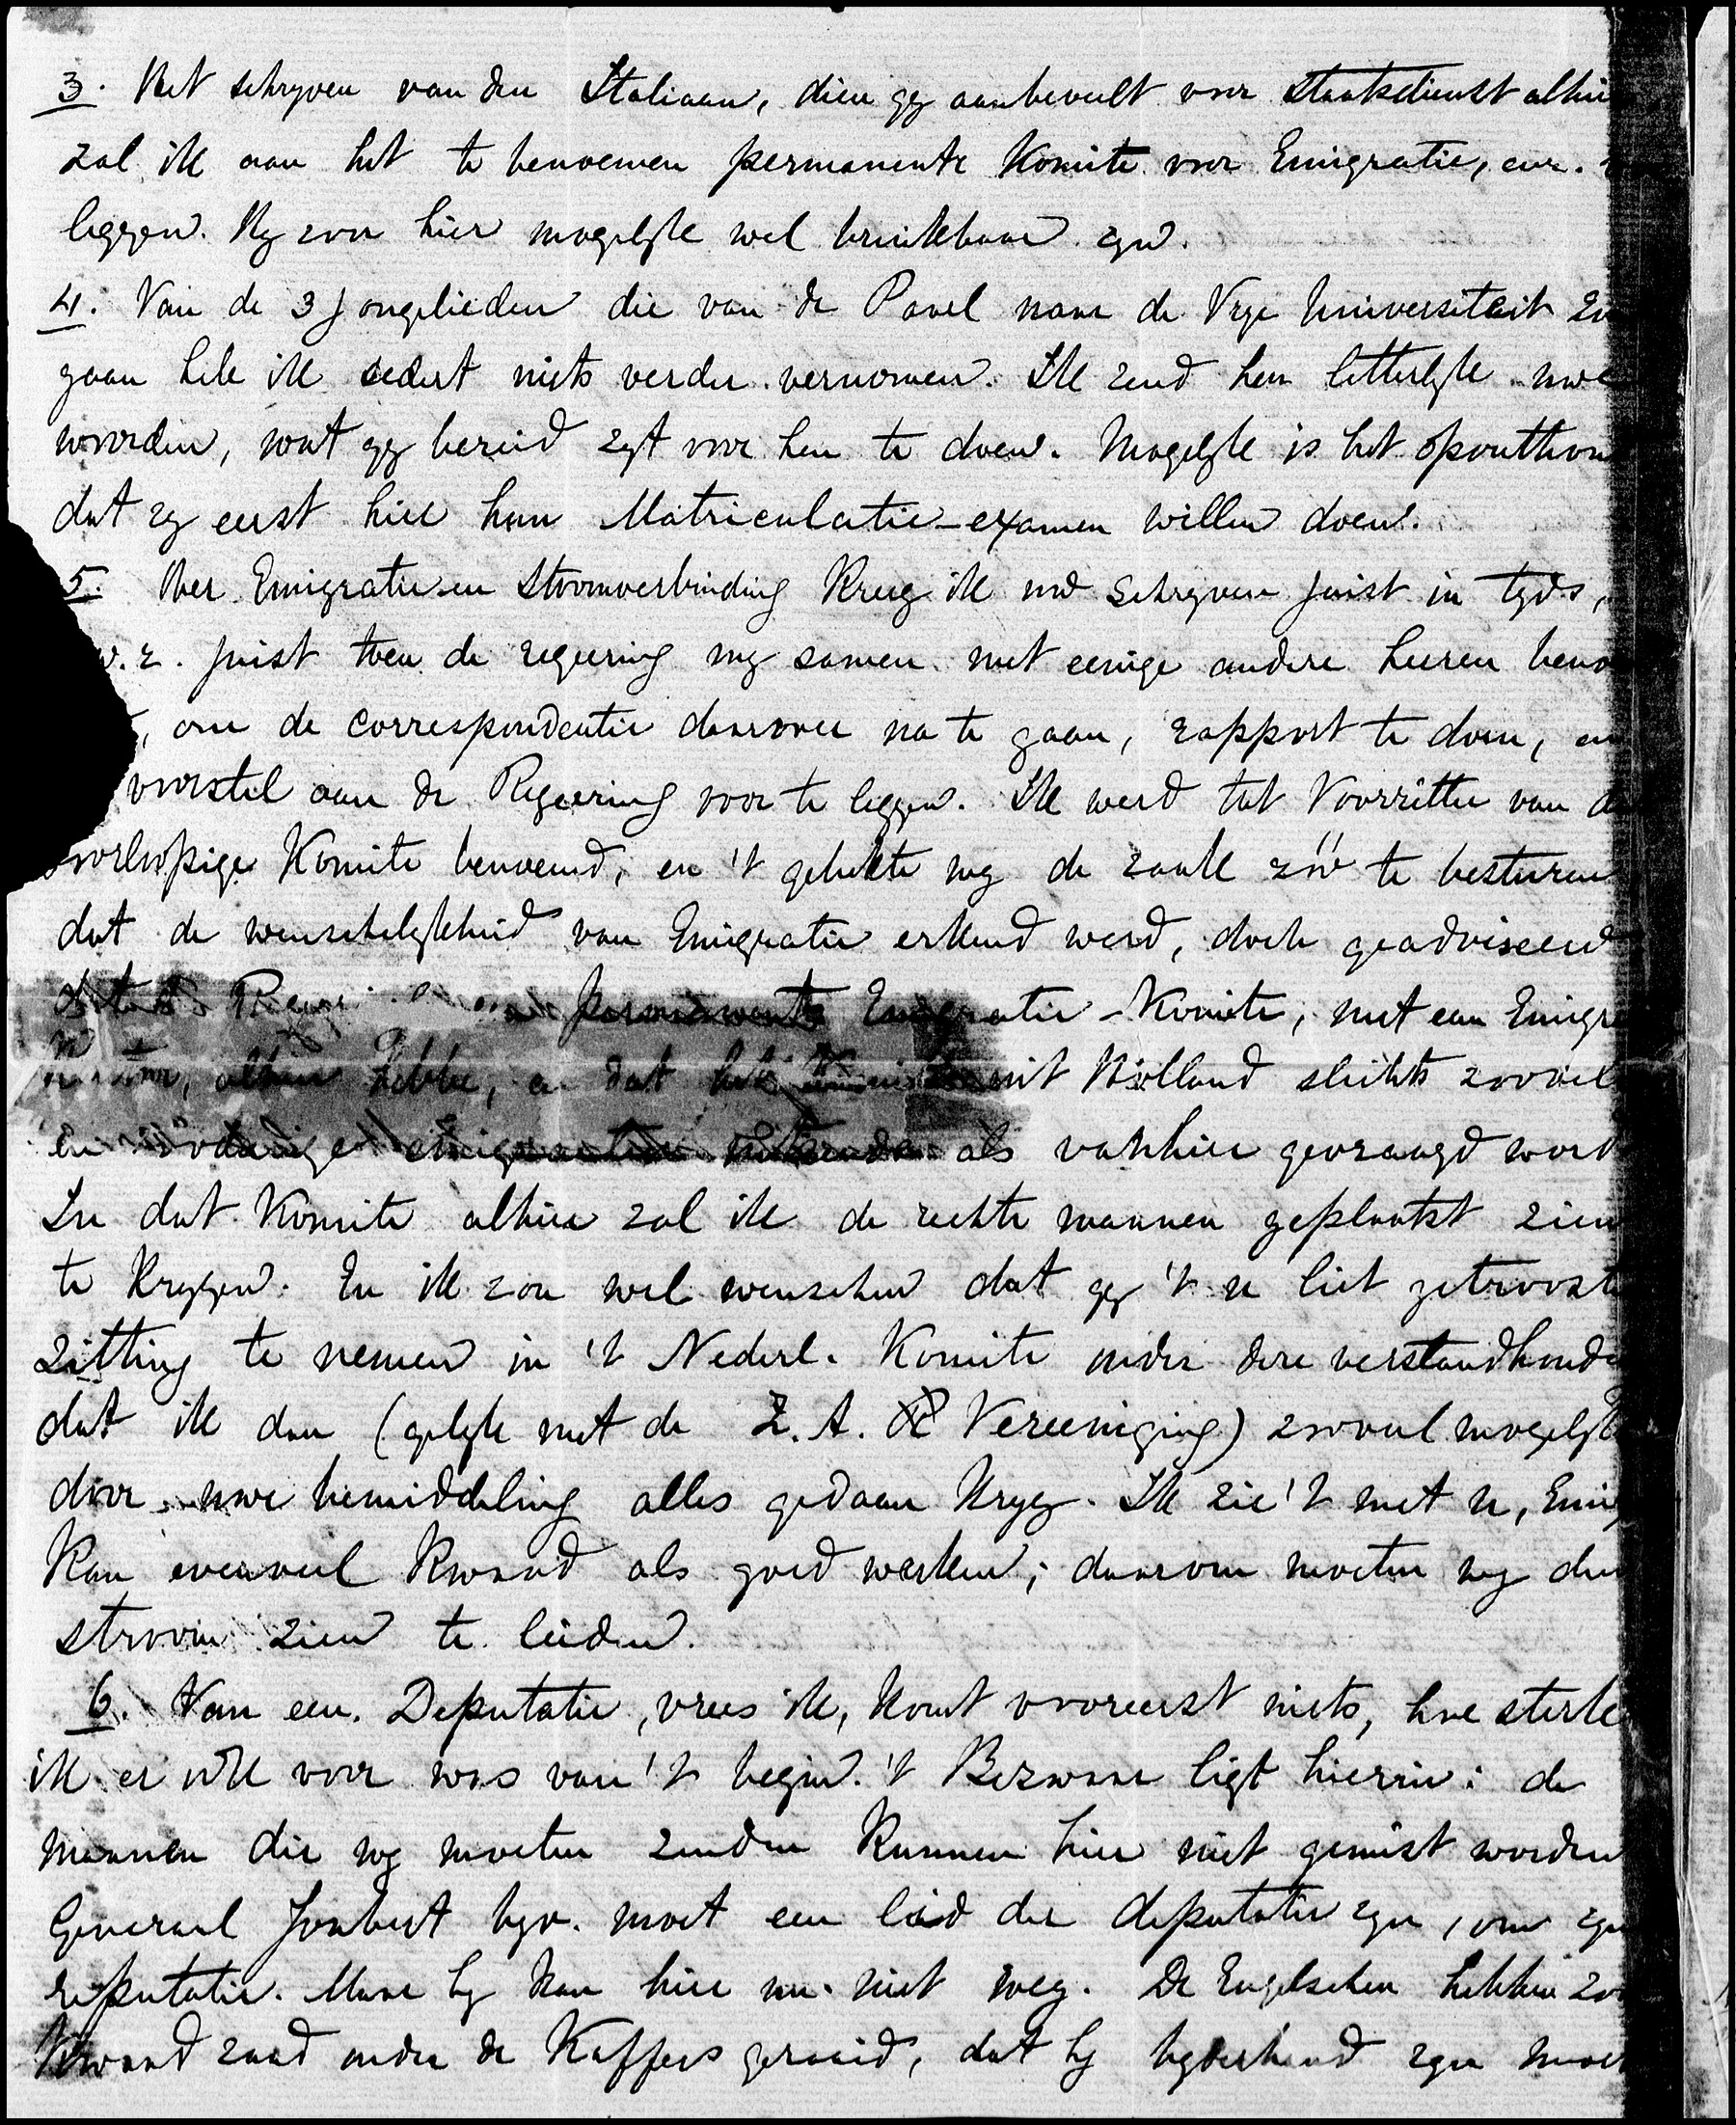 3. Het schryven van den Italiaan, dien gy aanbeveelt voor Staatsdienst alhier
zal ik aan het te benoemen permanente Komite voor Emigratie, enz.
leggen. Hy zou hier mogelyk wel bruikbaar zyn.
4. Van de 3 Jongelieden die van de Paarl naar de Vrye Universiteit zou
gaan heb ik sedert niets verder vernomen. Ik zend hen letterlyk uwe
woorden, wat gy bereid zyt voor hen te doen. Mogelyk is het oponthoud
dat zy eerst hier hun Matriculatie-examen willen doen.
5. Over Emigratie en Stoomverbinding kreeg ik uw schryven juist in tyds,
w.z. juist toen de regeering my samen met eenige andere heeren beno
, om de correspondentie daarover na te gaan, rapport te doen, en
voorstel aan de Regeering voor te leggen. Ik werd tot Voorzitter van de
voorloopige Komite benoemd, en 't gelukte my de zaak zóó te besturen
dat de wenschelykheid van Emigratie erkend werd, doch geadviseerd
dat de Regeering een permanente Emigratie-Komite, met een Emigr
alhier hebbe, en dat het Komite uit Holland slechts zooveel
en zoodanige emigranten uitzende als van hier gevraagd word
In dat Komite alhier zal ik de rechte mannen geplaatst zien
te krygen. En ik zou wel wenschen dat gy 't u liet getroost
zitting te nemen in 't Nederl. Komite onder deze verstandhoudi
dat ik dan (gelyk met de Z. A. Vereeniging) zooveel mogelyk
door uwe bemiddeling alles gedaan kryg. Ik zie 't met u, Emig
kan evenveel kwaad als goed werken; daarom moeten wy den
stroom zien te leiden.
6. Van een Deputatie, vrees ik, komt vooreerst niets, hoe sterk
ik er ook voor was van 't begin. 't Bezwaar ligt hierin: de
mannen die wy moeten zenden kunnen hier niet gemist worden
Generaal Joubert byv. moet een lid der deputatie zyn, om zyn
reputatie. Maar hy kan hier nu niet weg. De Engelschen hebben zoo
kwaad zaad onder de Kaffers gezaaid, dat hy byderhand zyn moet